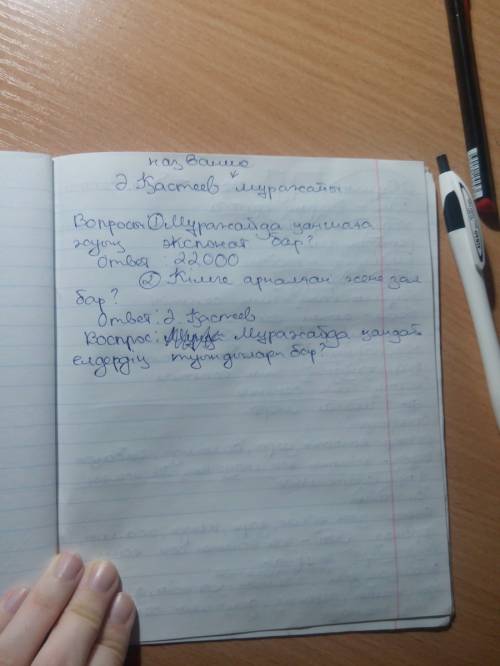 название
Ә Қастеев мұражайы
Вопросы ① Мұражайда қаншаға
жуық экспонат бар?
Ответ : 22000
② Кімге арналған жеке зал
бар?
Ответ : Ә Қастеев
Воспрос : Мұражайда қандай
елдердің туындылары бар?